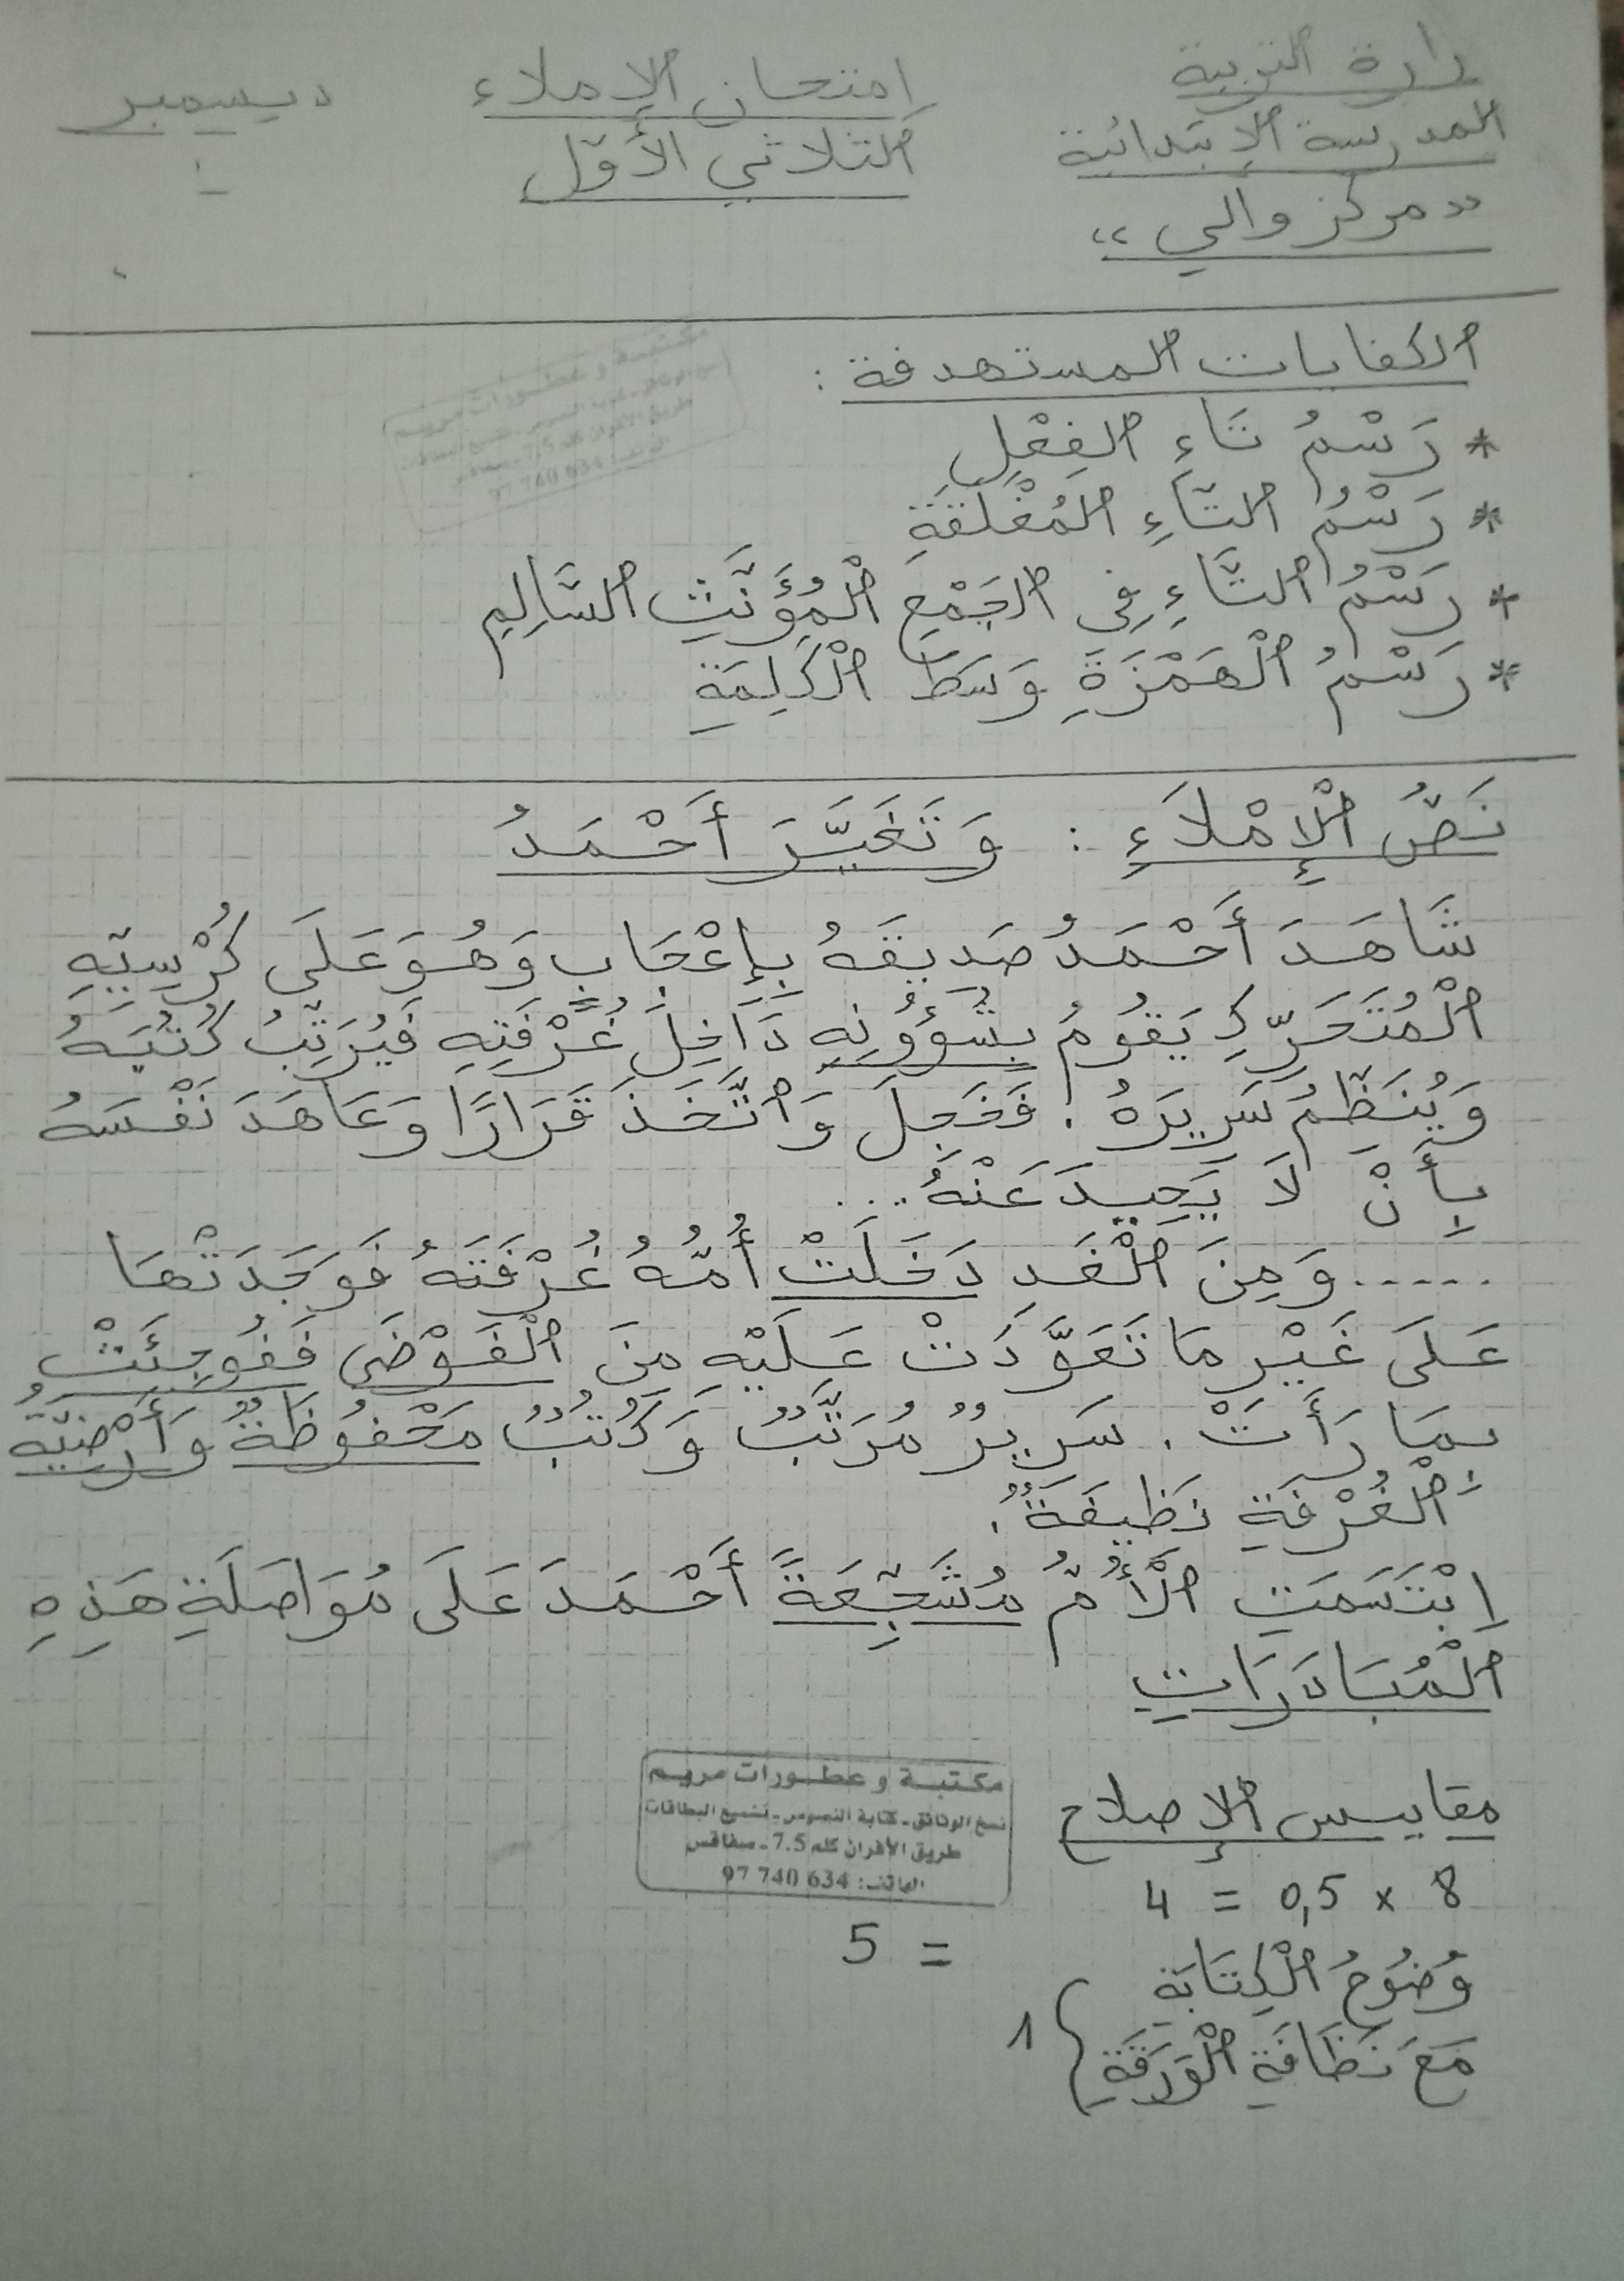 دارة التربية
المدرسة الإبتدائية
"مركز والي"
امتحان الإملاء
الثلاثي الأوّل
ديسمبر
الكفايات المستهدفة :
* رَسْمُ تَاءِ الفِعْلِ
* رَسْمُ التَّاءِ المُغْلَقَةِ
* رَسْمُ التَّاءِ فِي الجَمْعِ الْمُؤَنَّثِ السَّالِمِ
* رَسْمُ الْهَمْزَةِ وَسَطَ الْكَلِمَةِ
نَصُّ الْإِمْلَاءِ : وَتَغَيَّرَ أَحْمَدُ
شَاهَدَ أَحْمَدُ صَدِيقَهُ بِإِعْجَابٍ وَهُوَ عَلَى كُرْسِيِّهِ
الْمُتَحَرِّكِ يَقُومُ بِشُؤُونِهِ دَاخِلَ غُرْفَتِهِ فَيُرَتِّبُ كُتُبَهُ
وَيُنَظِّمُ سَرِيرَهُ . فَخَجِلَ وَاتَّخَذَ قَرَارًا وَعَاهَدَ نَفْسَهُ
بِأَنْ لَا يَحِيدَ عَنْهُ...
..... وَمِنَ الْغَدِ دَخَلَتْ أُمُّهُ غُرْفَتَهُ فَوَجَدَتْهَا
عَلَى غَيْرِ مَا تَعَوَّدَتْ عَلَيْهِ مِنَ الْفَوْضَى فَفُوجِئَتْ
بِمَا رَأَتْ . سَرِيرٌ مُرَتَّبٌ وَكُتُبٌ مَحْفُوظَةٌ وَأَرْضِيَّةُ
الْغُرْفَةِ نَظِيفَةٌ .
اِبْتَسَمَتِ الْأُمُّ مُشَجِّعَةً أَحْمَدَ عَلَى مُوَاصَلَةِ هَذِهِ
الْمُبَادَرَاتِ
مكتبة و عطورات مريم
نسخ الوثائق - كتابة النصوص - تشميع البطاقات
طريق الأفران كلم 7.5 - صفاقس
الهاتف: 634 740 97
مقاييس الإصلاح
8 × 0,5 = 4
= 5
وُضُوحُ الْكِتَابَةِ
مَعَ نَظَافَةِ الْوَرَقَةِ } 1